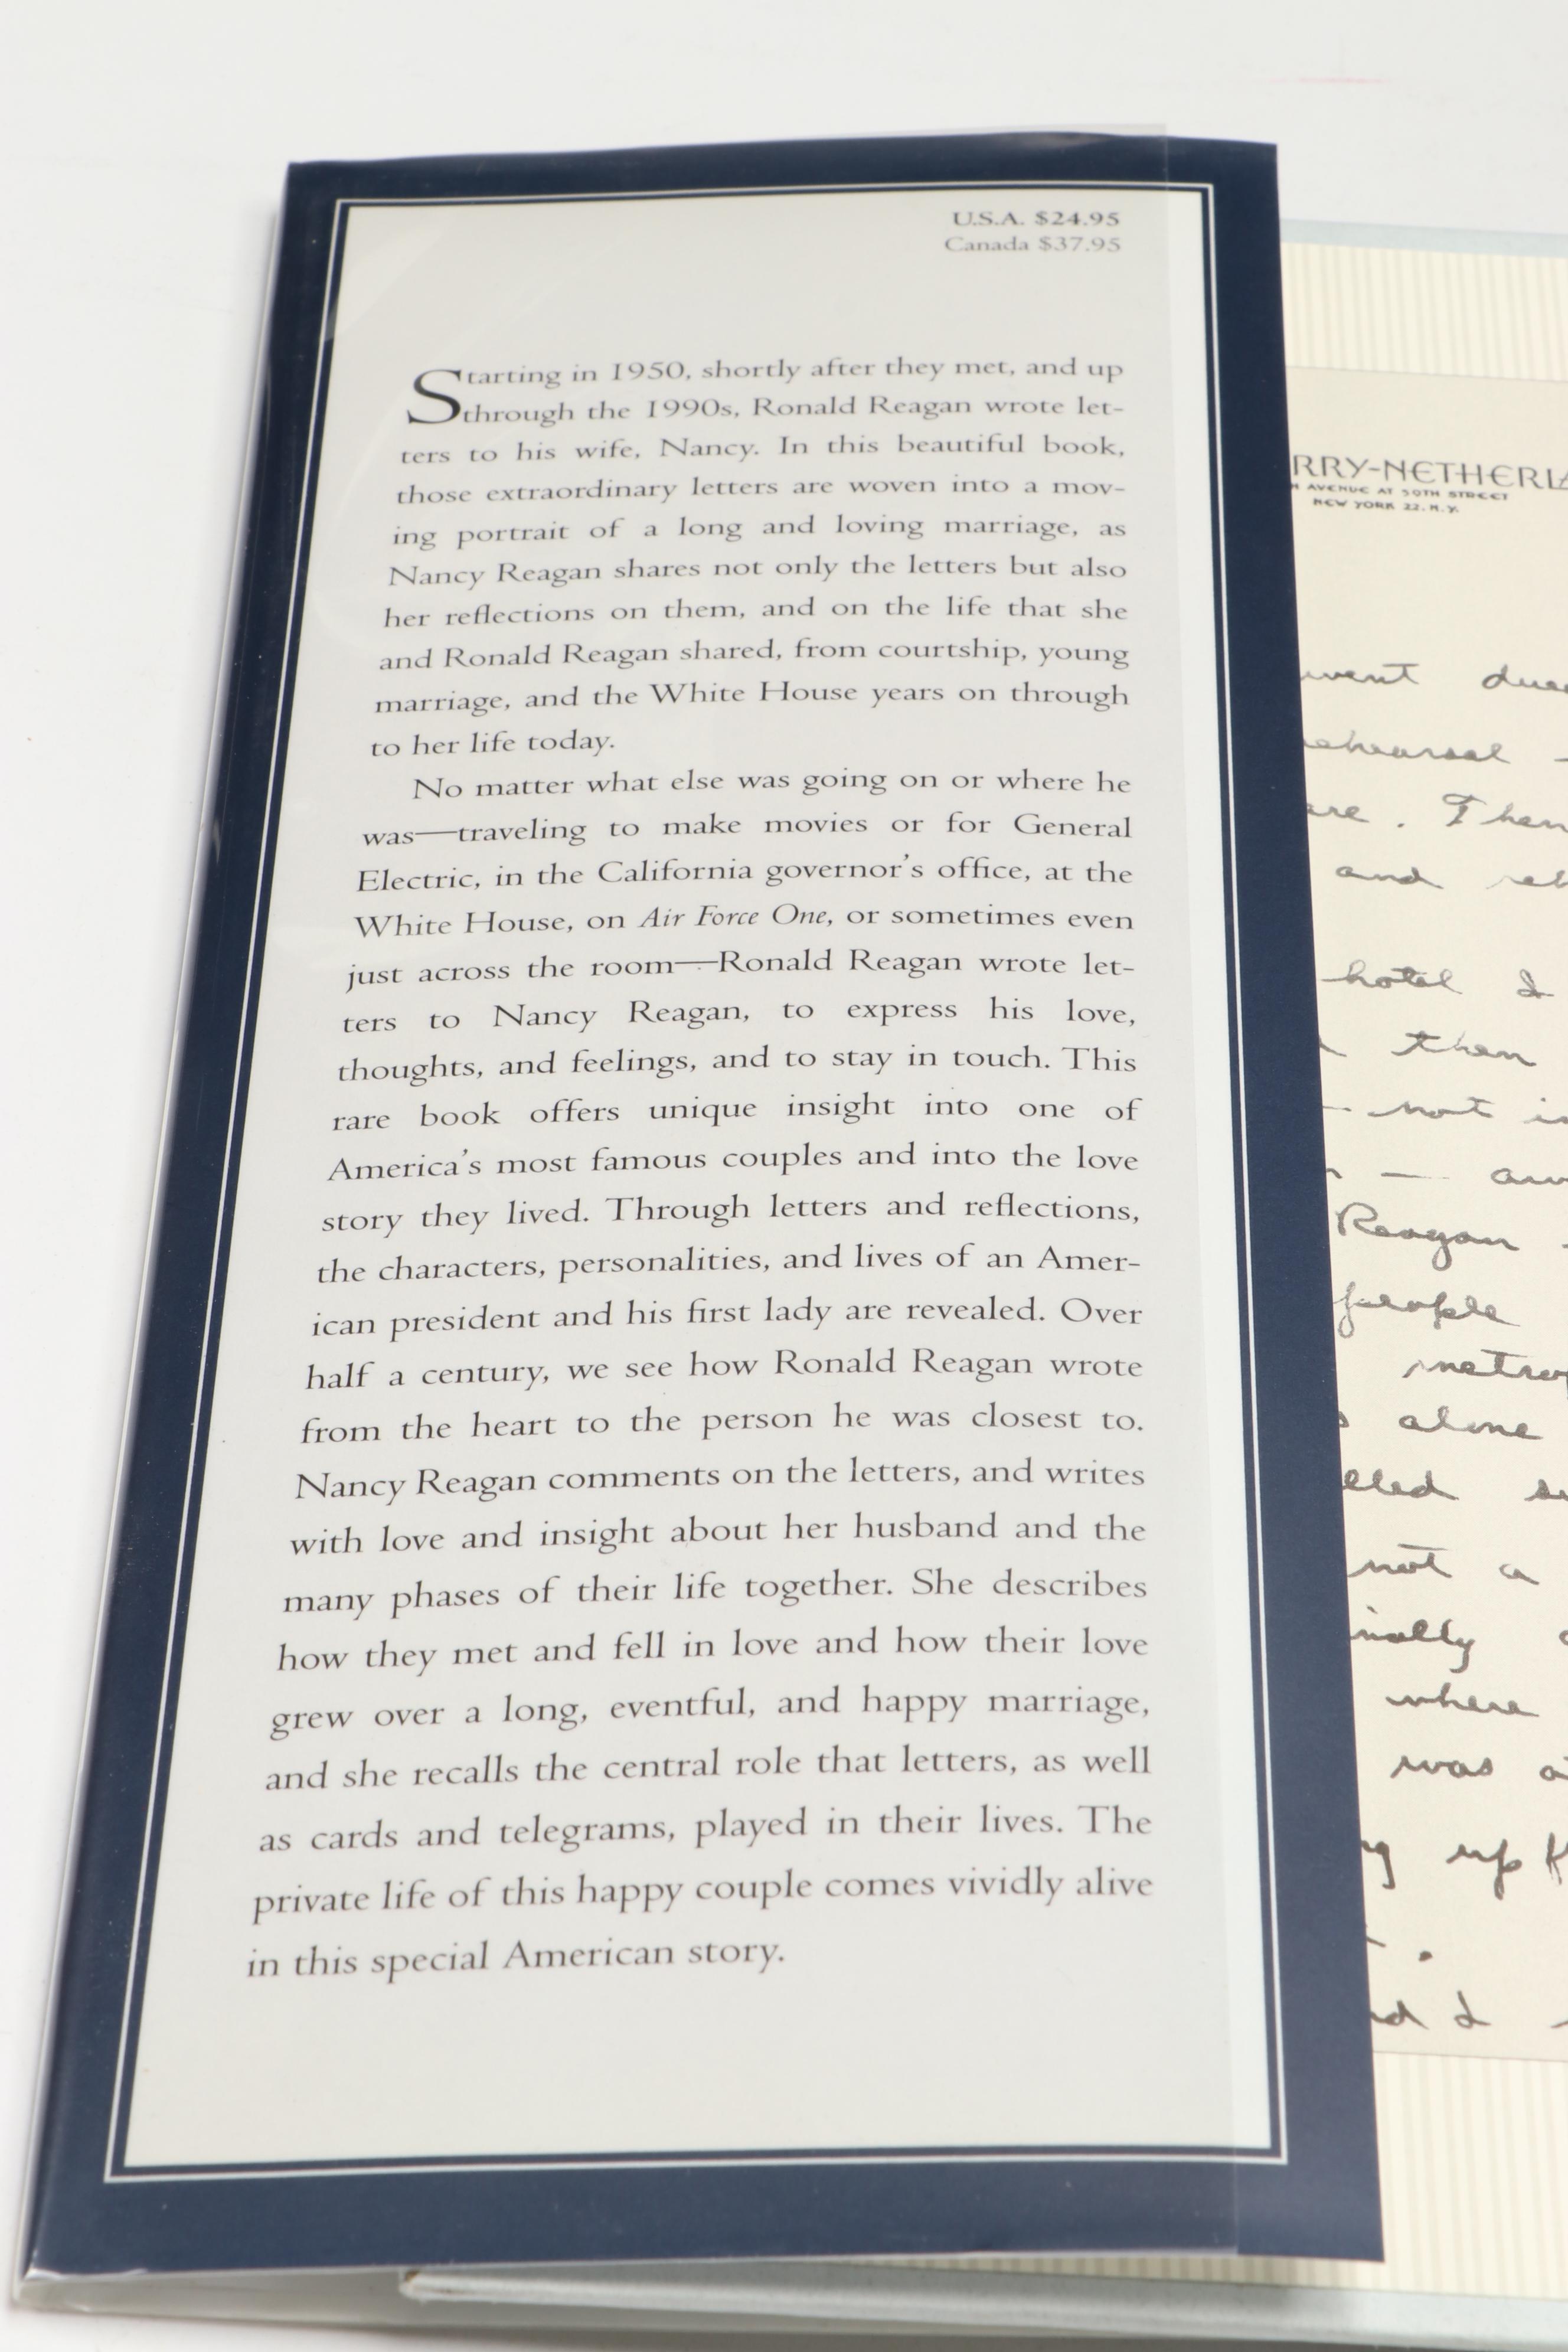 U.S.A. $24.95
Canada $37.95
Starting in 1950, shortly after they met, and up
through the 1990s, Ronald Reagan wrote let-
ters to his wife, Nancy. In this beautiful book,
those extraordinary letters are woven into a mov-
ing portrait of a long and loving marriage, as
Nancy Reagan shares not only the letters but also
her reflections on them, and on the life that she
and Ronald Reagan shared, from courtship, young
marriage, and the White House years on through
to her life today.
No matter what else was going on or where he
was—traveling to make movies or for General
Electric, in the California governor's office, at the
White House, on Air Force One, or sometimes even
just across the room—Ronald Reagan wrote let-
ters to Nancy Reagan, to express his love,
thoughts, and feelings, and to stay in touch. This
rare book offers unique insight into one of
America's most famous couples and into the love
story they lived. Through letters and reflections,
the characters, personalities, and lives of an Amer-
ican president and his first lady are revealed. Over
half a century, we see how Ronald Reagan wrote
from the heart to the person he was closest to.
Nancy Reagan comments on the letters, and writes
with love and insight about her husband and the
many phases of their life together. She describes
how they met and fell in love and how their love
grew over a long, eventful, and happy marriage,
and she recalls the central role that letters, as well
as cards and telegrams, played in their lives. The
private life of this happy couple comes vividly alive
in this special American story.
RRY-NETHERLA
AVENUE AT 59TH STREET
NEW YORK 22, N.Y.
went
rehearsal -
are. Then
and
hotel I
then
- not
-
Reagan -
people
alone
not a
where
was
up
d I